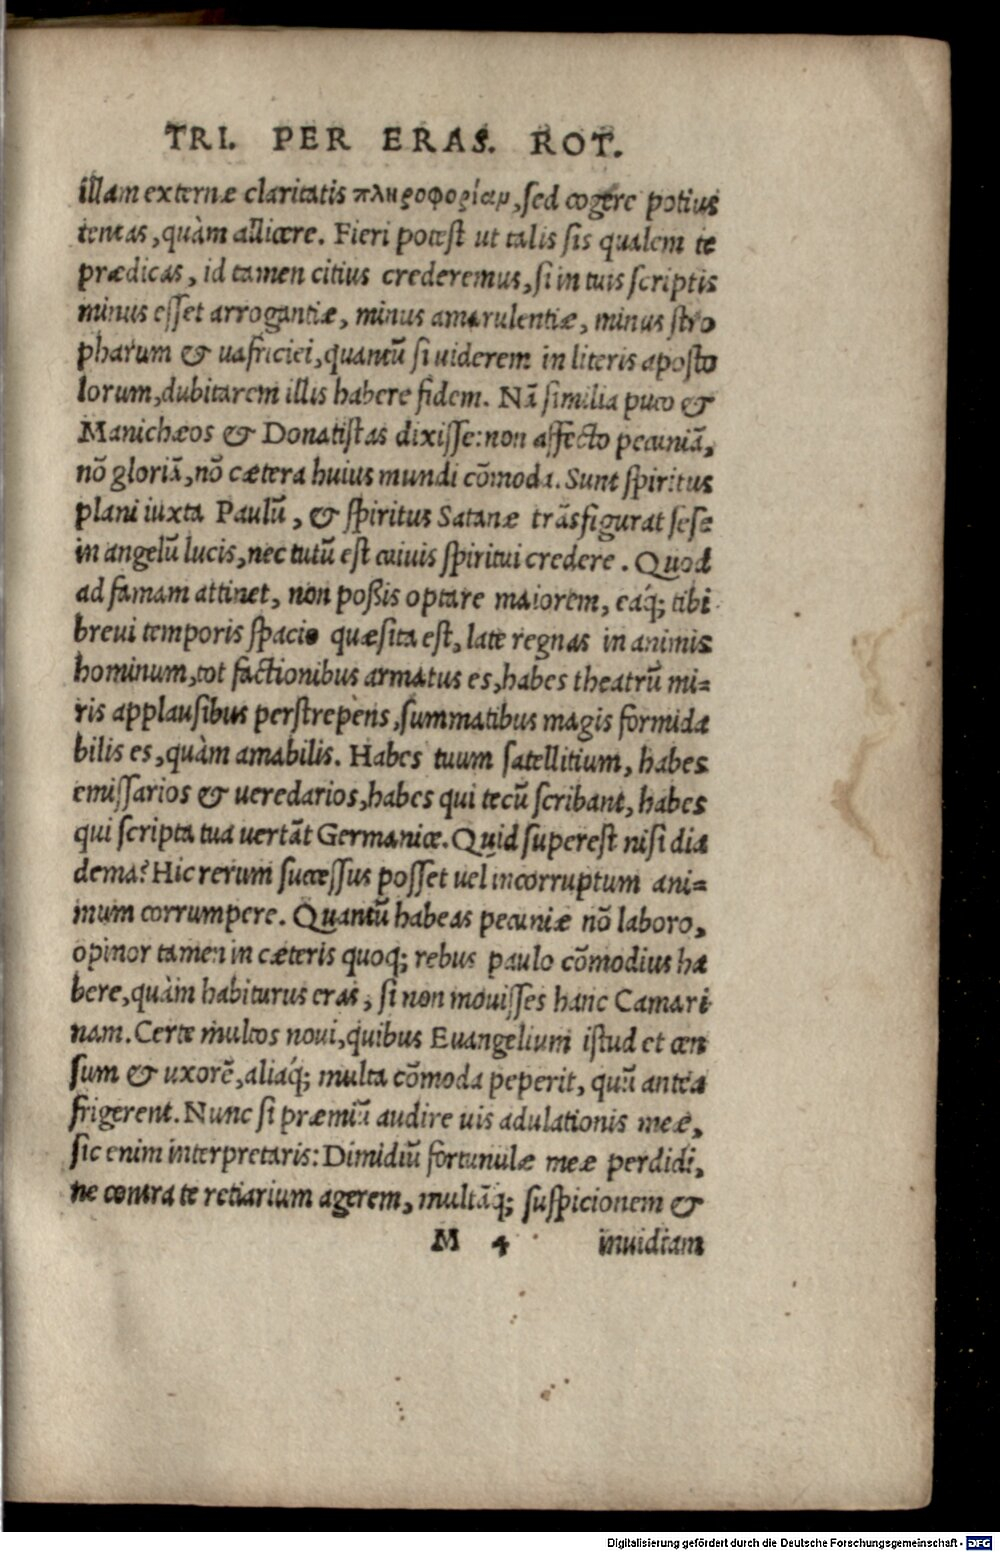 TRI. PER ERAS. ROT.
illam externæ claritatis πληροφορίαν, sed cogere potius
tentas, quàm allicere. Fieri potest ut talis sis qualem te
prædicas, id tamen citius crederemus, si in tuis scriptis
minus esset arrogantiæ, minus amarulentiæ, minus stro
pharum & uafriciei, quantũ si uiderem in literis aposto
lorum, dubitarem illis habere fidem. Nã similia puto &
Manichæos & Donatistas dixisse: non affecto pecuniã,
nõ gloriã, nõ cætera huius mundi cõmoda. Sunt spiritus
plani iuxta Paulũ, & spiritus Satanæ trãsfigurat sese
in angelũ lucis, nec tutũ est cuiuis spiritui credere. Quod
ad famam attinet, non poßis optare maiorem, eaq́; tibi
breui temporis spacio quæsita est, late regnas in animis
hominum, tot factionibus armatus es, habes theatrũ mi=
ris applausibus perstrepens, summatibus magis formida
bilis es, quàm amabilis. Habes tuum satellitium, habes
emissarios & ueredarios, habes qui tecũ scribant, habes
qui scripta tua uertãt Germanice. Quid superest nisi dia
dema? Hic rerum successus posset uel incorruptum ani=
mum corrumpere. Quantũ habeas pecuniæ nõ laboro,
opinor tamen in cæteris quoq; rebus paulo cõmodius ha
bere, quàm habiturus eras, si non mouisses hanc Camari
nam. Certe multos noui, quibus Euangelium istud et cen
sum & uxorẽ, aliaq́; multa cõmoda peperit, quũ antea
frigerent. Nunc si præmiũ audire uis adulationis meæ,
sic enim interpretaris: Dimidiũ fortunulæ meæ perdidi,
ne contra te retiarium agerem, multãq́; suspicionem &
M 4 inuidiam
Digitalisierung gefördert durch die Deutsche Forschungsgemeinschaft - DFG